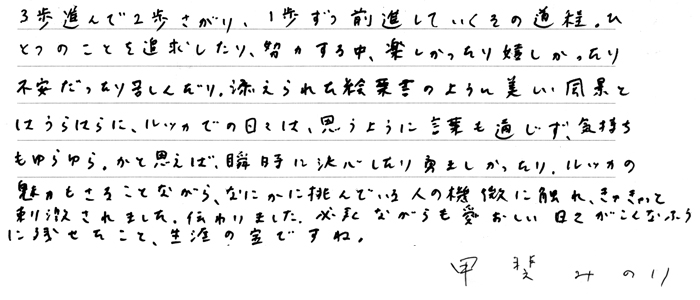 3歩進んで2歩さがり、1歩ずつ前進していくその道程。ひ
とつのことを追求したり、努力する中、楽しかったり嬉しかったり
不安だったり苦しんだり。添えられた絵葉書のように美しい風景と
はうらはらに、ルッカでの日々は、思うように言葉も通じず、気持ち
もゆらゆら。かと思えば、瞬時に決心したり勇ましかったり。ルッカの
魅力もさることながら、なにかに挑んでいる人の機微に触れ、きゅきゅっと
刺激されました。伝わりました。必死ながらも愛おしい日々がこんなふう
に残せたこと、生涯の宝ですね。
甲斐みのり